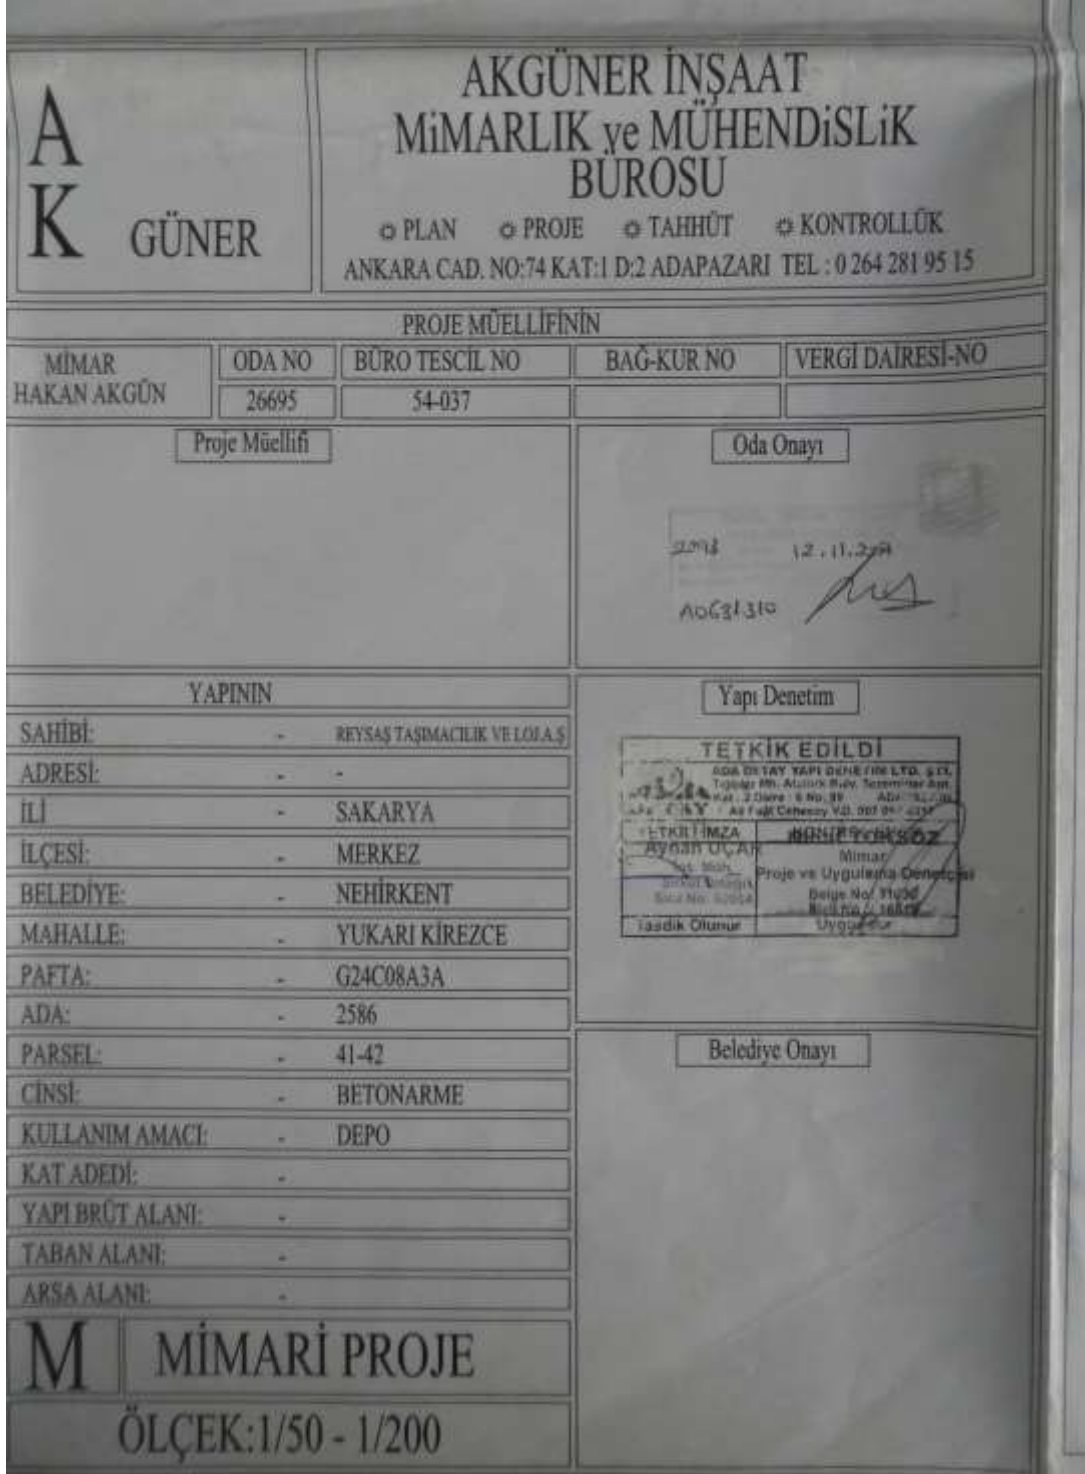 A
K GÜNER
AKGÜNER İNŞAAT
MiMARLIK ve MÜHENDiSLiK
BÜROSU
PLAN PROJE TAHHÜT KONTROLLÜK
ANKARA CAD. NO:74 KAT:1 D:2 ADAPAZARI TEL : 0 264 281 95 15
PROJE MÜELLİFİNİN
MİMAR
HAKAN AKGÜN
ODA NO
26695
BÜRO TESCİL NO
54-037
BAĞ-KUR NO
VERGİ DAİRESİ-NO
Proje Müellifi
Oda Onayı
12.11.
A0631310
YAPININ
SAHİBİ: - REYSAŞ TAŞIMACILIK VE LOJ.A.Ş
ADRESİ: - -
İLİ - SAKARYA
İLÇESİ: - MERKEZ
BELEDİYE: - NEHİRKENT
MAHALLE: - YUKARI KİREZCE
PAFTA: - G24C08A3A
ADA: - 2586
PARSEL: - 41-42
CİNSİ: - BETONARME
KULLANIM AMACI: - DEPO
KAT ADEDİ: -
YAPI BRÜT ALANI: -
TABAN ALANI: -
ARSA ALANI: -
M MİMARİ PROJE
ÖLÇEK:1/50 - 1/200
Yapı Denetim
TETKİK EDİLDİ
ADA DETAY YAPI DENETİM LTD. ŞTİ.
Ayhan UÇAR
Mimar
Proje ve Uygulama Denetçisi
Tasdik Olunur
Uygundur
Belediye Onayı